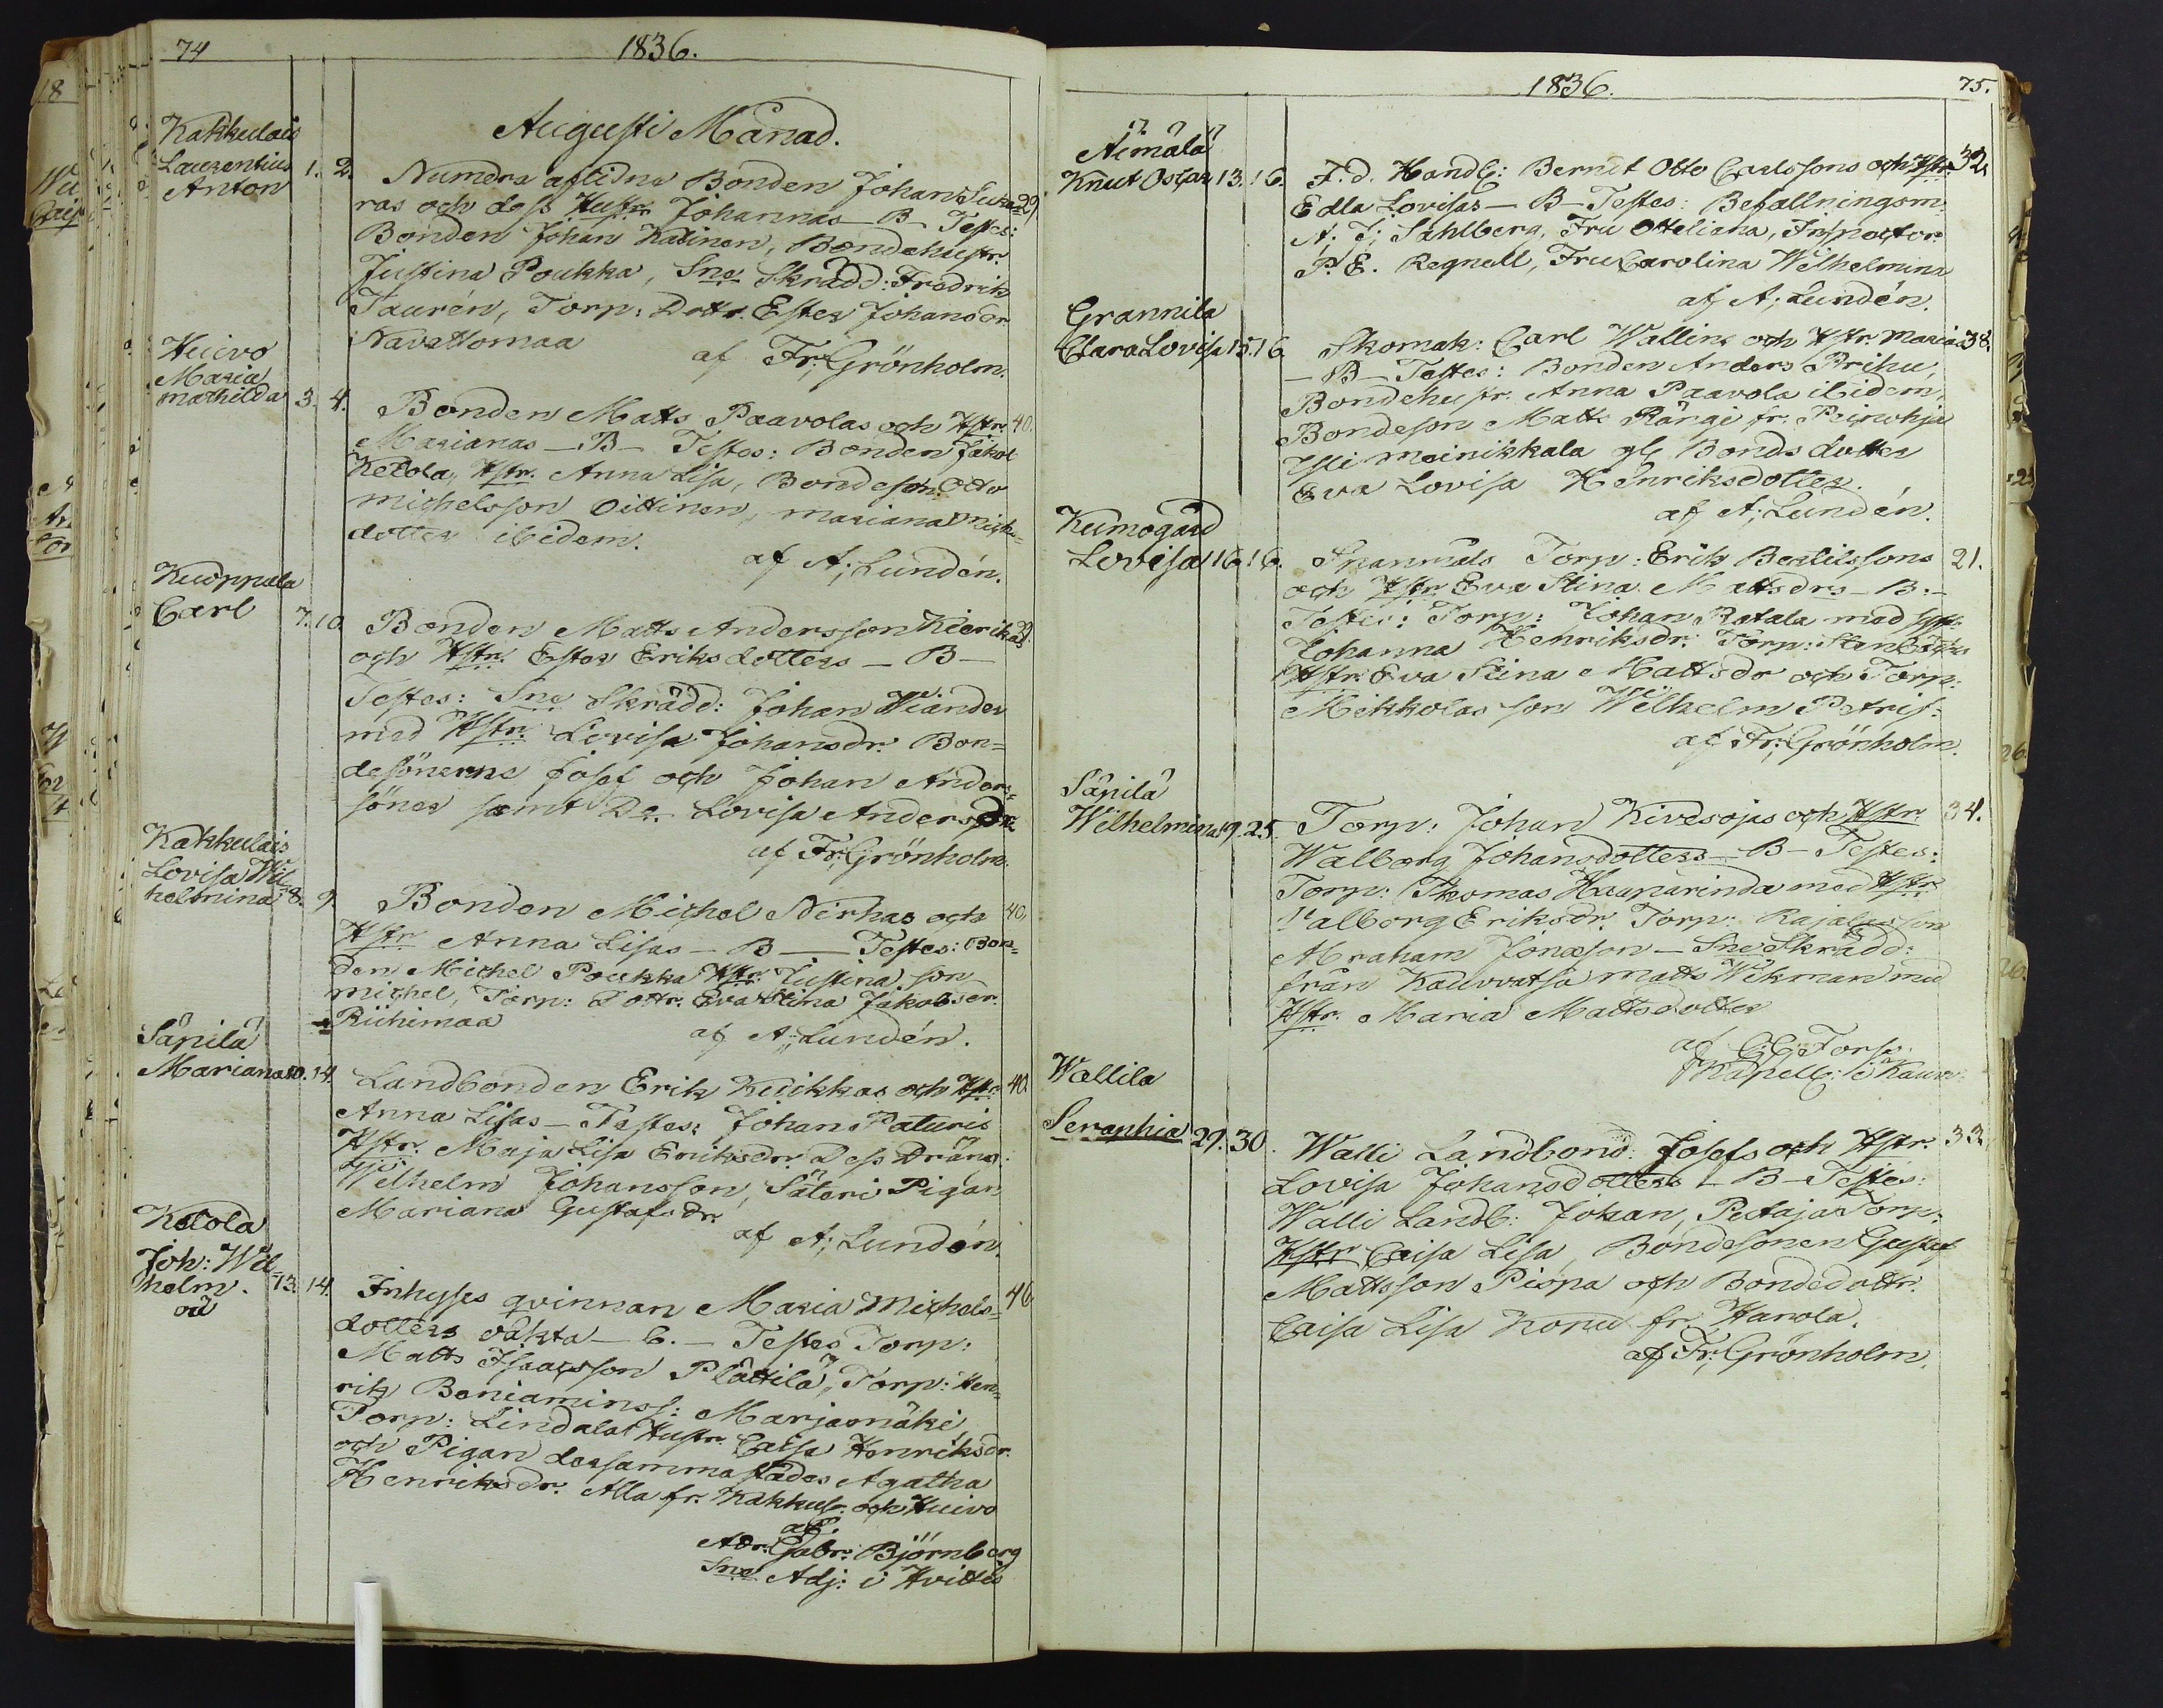 74
1836.
Augusti Månad.
Kakkulais
Laurentius
Anton
1. 2. Numera aflidna Bonden Johans
ras och dess Hustr. Johannas - B - Testes: 29.
Bonden Johan Katinen, Bondehustr.
Justina Poukka, Sne Skrädd: Fredrik
Taurén, Torp: Dottr. Ester Johansdr
Navattomaa
af Fr: Grönholm.
Huivo
Maria
Mathilda 3. 4. Bonden Matts Paavolas och Hstr. 40.
Marianas - B - Testes: Bonden Jakob
Ketola, Hstr. Anna Lisa, Bondeson Otto
Michelsson Oittinen, Mariana Michels=
dotter ibidem.
af A; Lundén.
Kuoppala
Carl 7. 10. Bonden Matts Andersson
och Hstr. Ester Eriksdotters - B -
Testes: Sne Skrädd: Johan Wiander
med Hstr. Lovisa Johansdr. Bon=
desönerne Josef och Johan Anders=
söner samt Dr. Lovisa Andersdr
af Fr: Grönholm.
Kakkulais
Lovisa Wil=
helmina 8. 9. Bonden Michel Nirhas och 40.
Hstr Anna Lisas - B - Testes: Bon=
den Michel Poukka Hstr: Justina, son
Michel, Torp: Dottr. Eva Stina Jakobsdr.
Riihimaa
af A; Lundén.
Säpilä
Mariana 10. 14. Landbonden Erik Kuikkas och Hstr: 40.
Anna Lisas - Testes: Johan Paturis
Hstr. Maja Lisa Eriksdr. Dess Dräng:
Wilhelm Johansson, Säteri Pigan
Mariana Gustafsdr.
af A; Lundén.
Ketola
Joh: Wil=
helm. 13. 14. Inhyses qvinnan Maria Michels= 46
oä
dotters oäkta - B. - Testes Torp:
Matts Isaacsson Plättilä, Torp: Hen=
rik Beniaminss: Marjamäki,
Torp: Lindala Hustr. Caisa Henriksdr.
och Pigan dersammastädes Agatha
Henriksdr. Alla fr. Kakkul: och Huivo
af
Adr: Gabr: Björnberg
Sne Adj: i Hvittis
1836.
75.
Äimälä
Knut Oscar 13. 16. F. d. Handl: Berndt Otto Carlssons och Hstr 32.
Edla Lovisas - B - Testes: Befallningsm:
A: J; Sahlberg, Fru Otteliana, Inspector
P. E. Regnell, Fru Carolina Wilhelmina
af A; Lundén.
Grannila
Clara Lovisa 15. 16. Skomak: Carl Wallins och Hstr. Marias 38.
- B - Testes: Bonden Anders Prihu,
Bondehustr. Anna Paavola ibidem,
Bondeson Matts Rängi fr. Peipohja
Ylli Moinikkala gl Bonds dotter
Eva Lovisa Henriksdotter.
af A; Lundén.
Kumogård
Lovisa 16. 16. Torp: Erik Bertilssons 21.
och Hstr Eva Stina Mattsdrs - B. -
Testes: Torp: Johan Ratala med Hstr:
Johanna Henriksdr: Torp:
Hstr. Eva Stina Mattsdr och Torp:
Mikkolas son Wilhelm
af Fr; Grönholm.
Säpilä
Wilhelmina 19. 25. Torp: Johan Kivesojas och Hstr 34.
Walborg Johansdotters - B - Testes:
Torp: Thomas Haunarinda med Hstr
Valborg Eriksdr. Torp: son
Abraham Jonasson - Sne Skrädd:
från Kauvatsa Matts Wikman med
Hstr. Maria Mattsdotter
af
Kapell: i Kauv.
Wallila
Seraphia 29. 30. Walli Landbond: Josefs och Hstr. 33.
Lovisa Johansdotters - B - Testes:
Walli Landb: Johan, Petaja Torp:
Hstr Caisa Lisa, Bondesonen Gustaf
Mattsson Piopa och Bondedottr.
Caisa Lisa Koru fr. Harola.
af Fr; Grönholm.